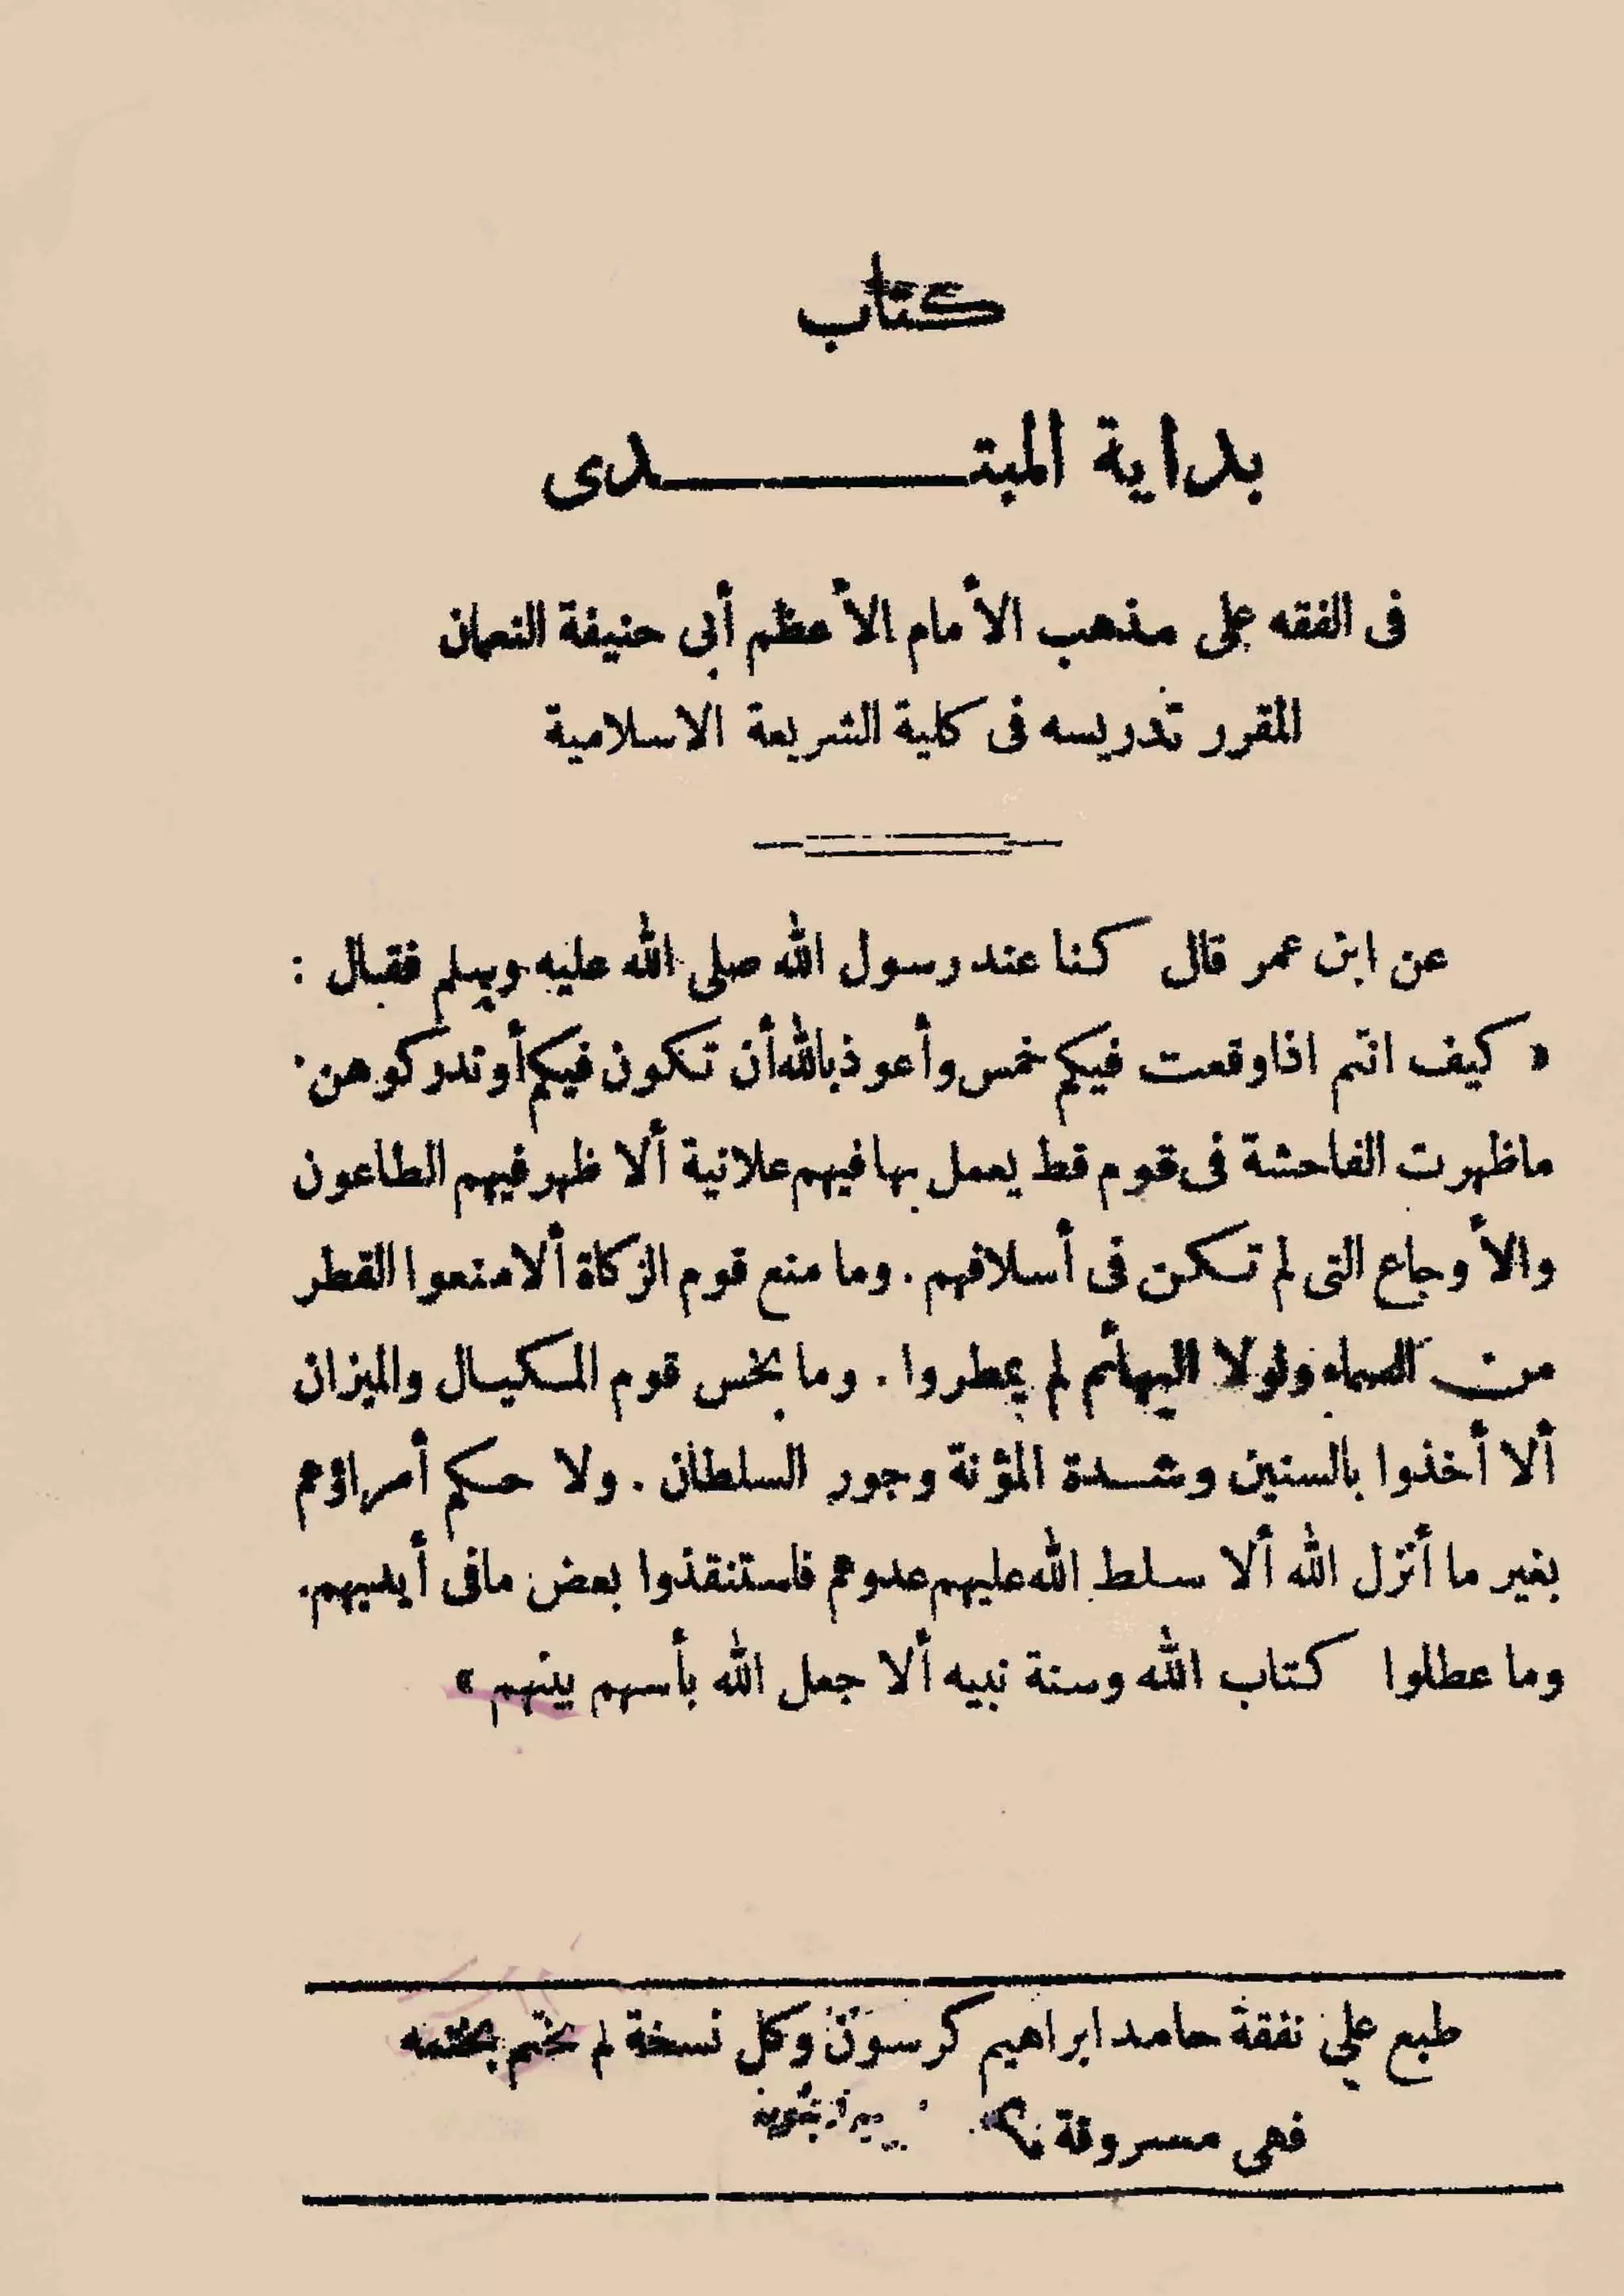 كتاب
بداية المبتدى
فى الفقه على مذهب الأمام الأعظم أبى حنيفة النعمان
المقرر تدريسه فى كلية الشريعة الاسلامية
عن ابن عمر قال كنا عند رسول الله صلى الله عليه وسلم فقال :
« كيف انتم اذا وقعت فيكم خمس وأعوذ بالله أن تكون فيكم أو تدركوهن .
ما ظهرت الفاحشة فى قوم قط يعمل بها فيهم علانية ألا ظهر فيهم الطاعون
والأوجاع التى لم تكن فى أسلافهم . وما منع قوم الزكاة ألا منعوا القطر
من السماء ولولا البهائم لم يمطروا . وما بخس قوم المكيال والميزان
ألا أخذوا بالسنين وشدة المؤنة وجور السلطان . ولا حكم أمراؤهم
بغير ما أنزل الله ألا سلط الله عليهم عدوهم فاستنقذوا بعض مافى أيديهم .
وما عطلوا كتاب الله وسنة نبيه ألا جعل الله بأسهم بينهم »
طبع على نفقة حامد ابراهيم كرسون وكل نسخة لم تختم بختمه
فهى مسروقة